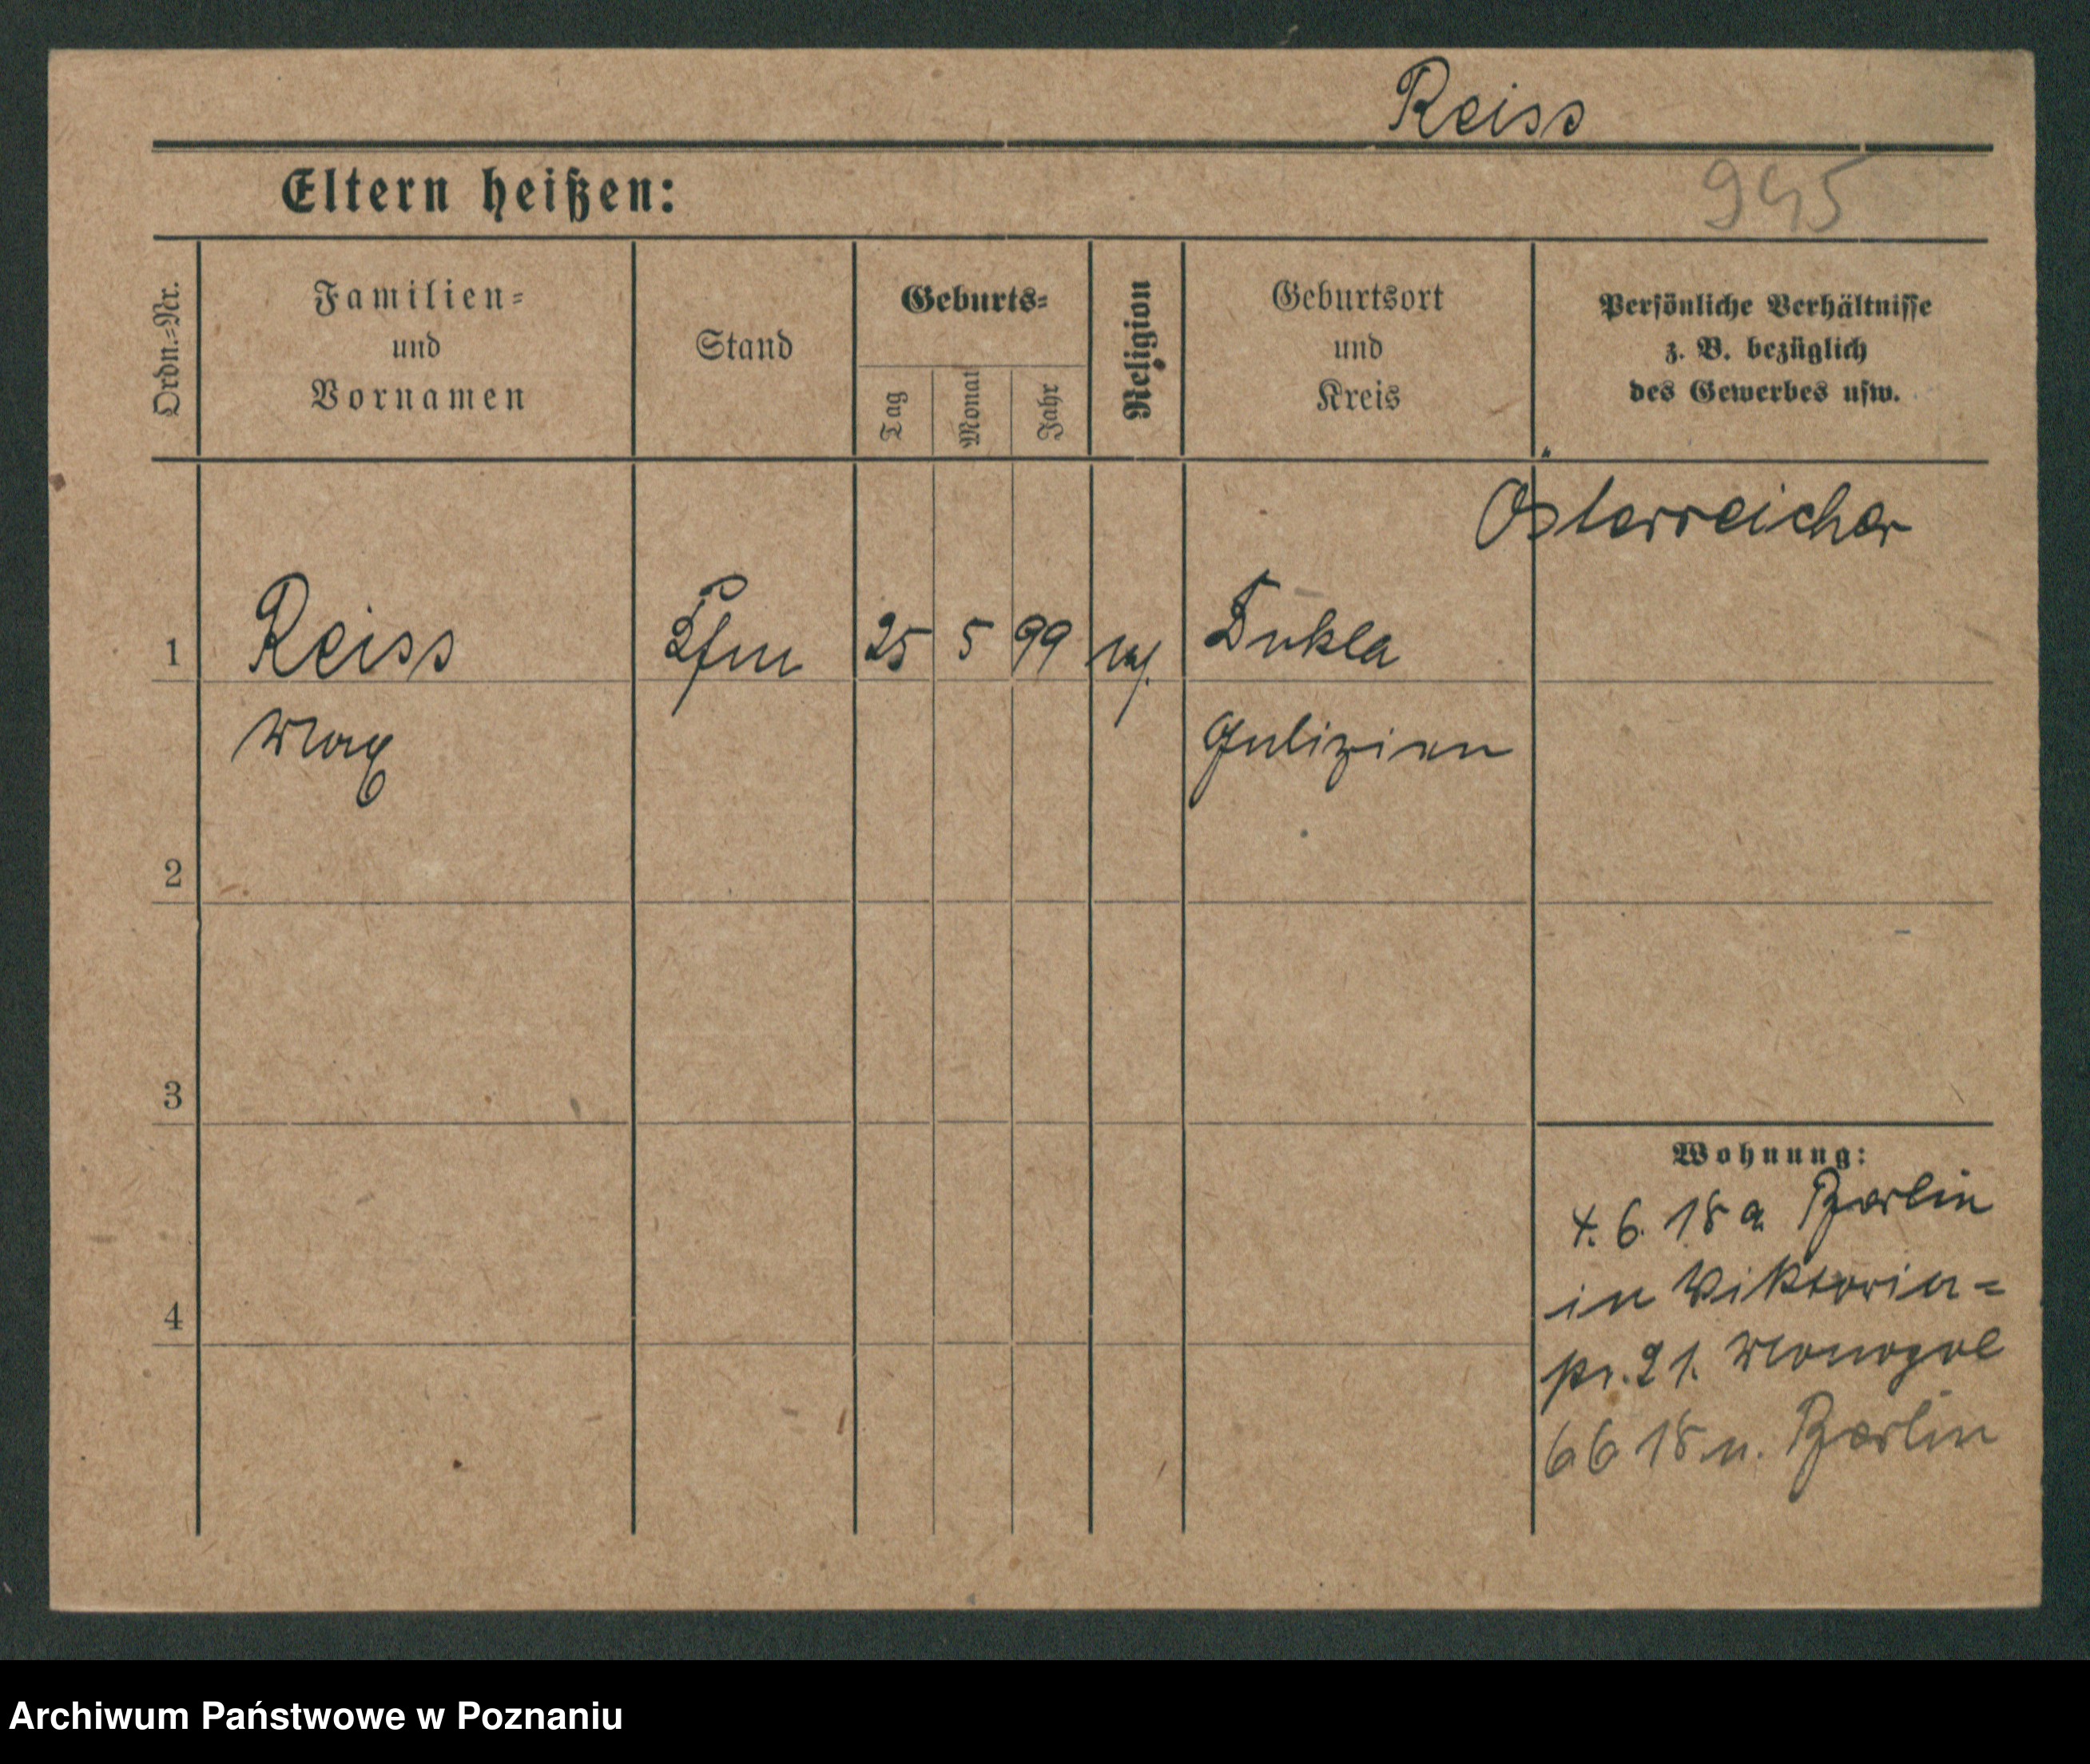 Reiss
Eltern heißen:
945
Ordn.=Nr.
Familien=
und
Vornamen
Stand
Geburts=
Tag
Monat
Jahr
Religion
Geburtsort
und
Kreis
Persönliche Verhältnisse
z. B. bezüglich
des Gewerbes usw.
Österreicher
1 Reiss Kfm 25 5 99 Dukla
Max Galizien
2
3
Wohnung:
4. 6. 18 a Berlin
in Viktoria=
4
21. Monopol
6 6 18 n. Berlin
Archiwum Państwowe w Poznaniu